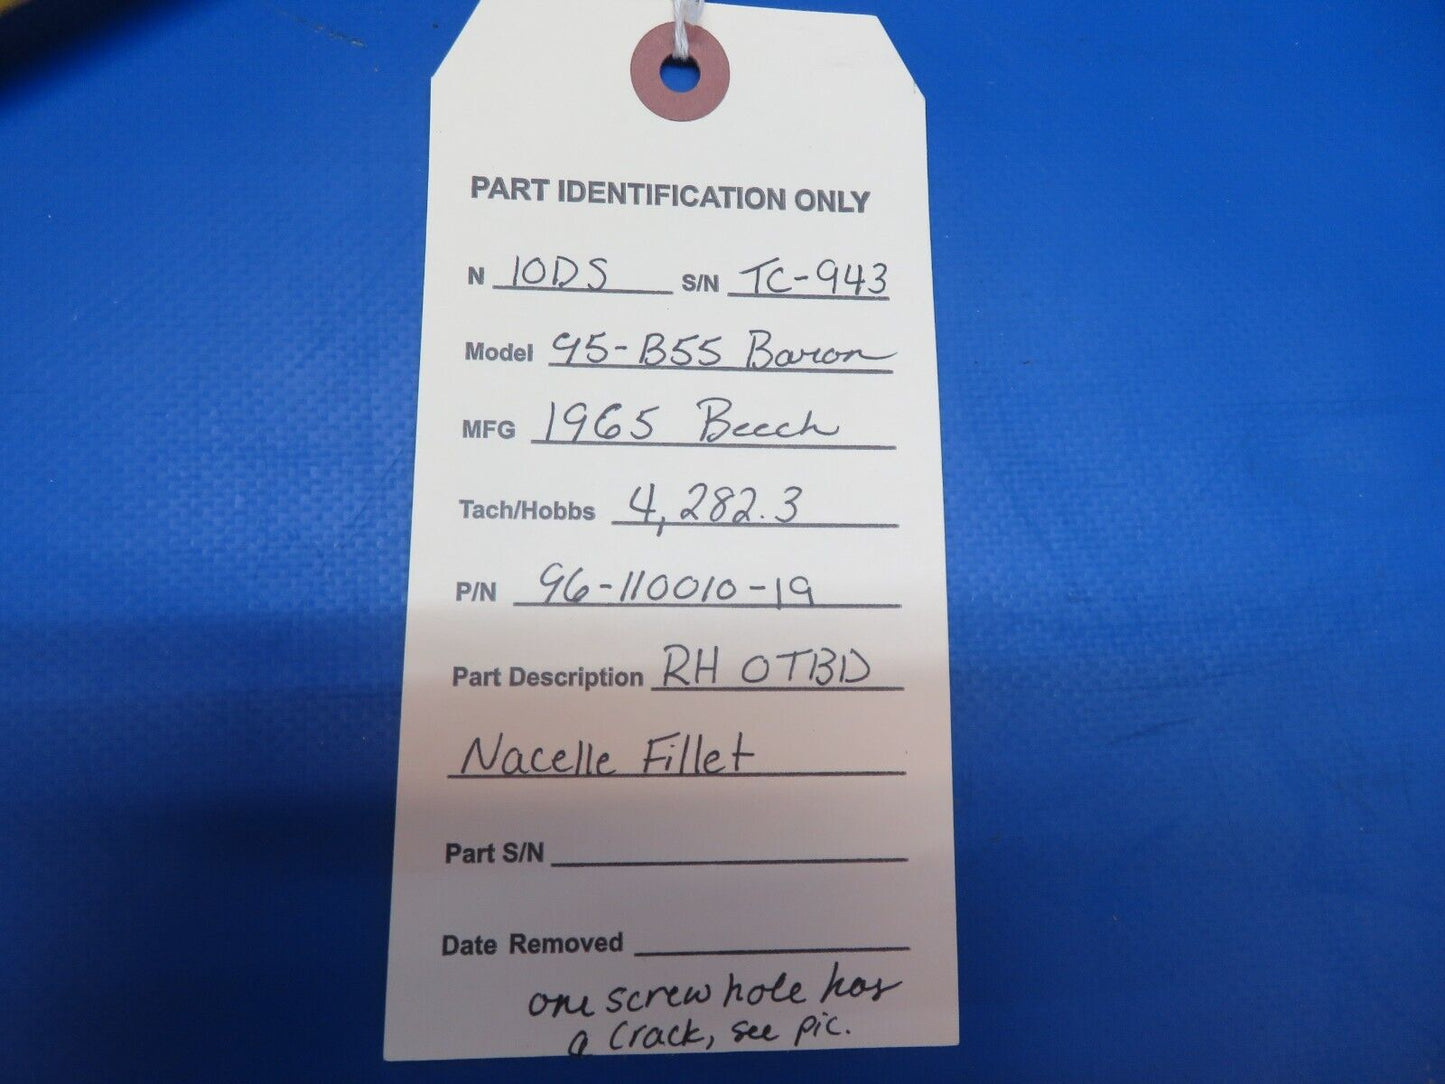 PART IDENTIFICATION ONLY
N 10DS S/N TC-943
Model 95-B55 Baron
MFG 1965 Beech
Tach/Hobbs 4,282.3
P/N 96-110010-19
Part Description RH OTBD
Nacelle Fillet
Part S/N
Date Removed
one screw hole has
a crack, see pic.